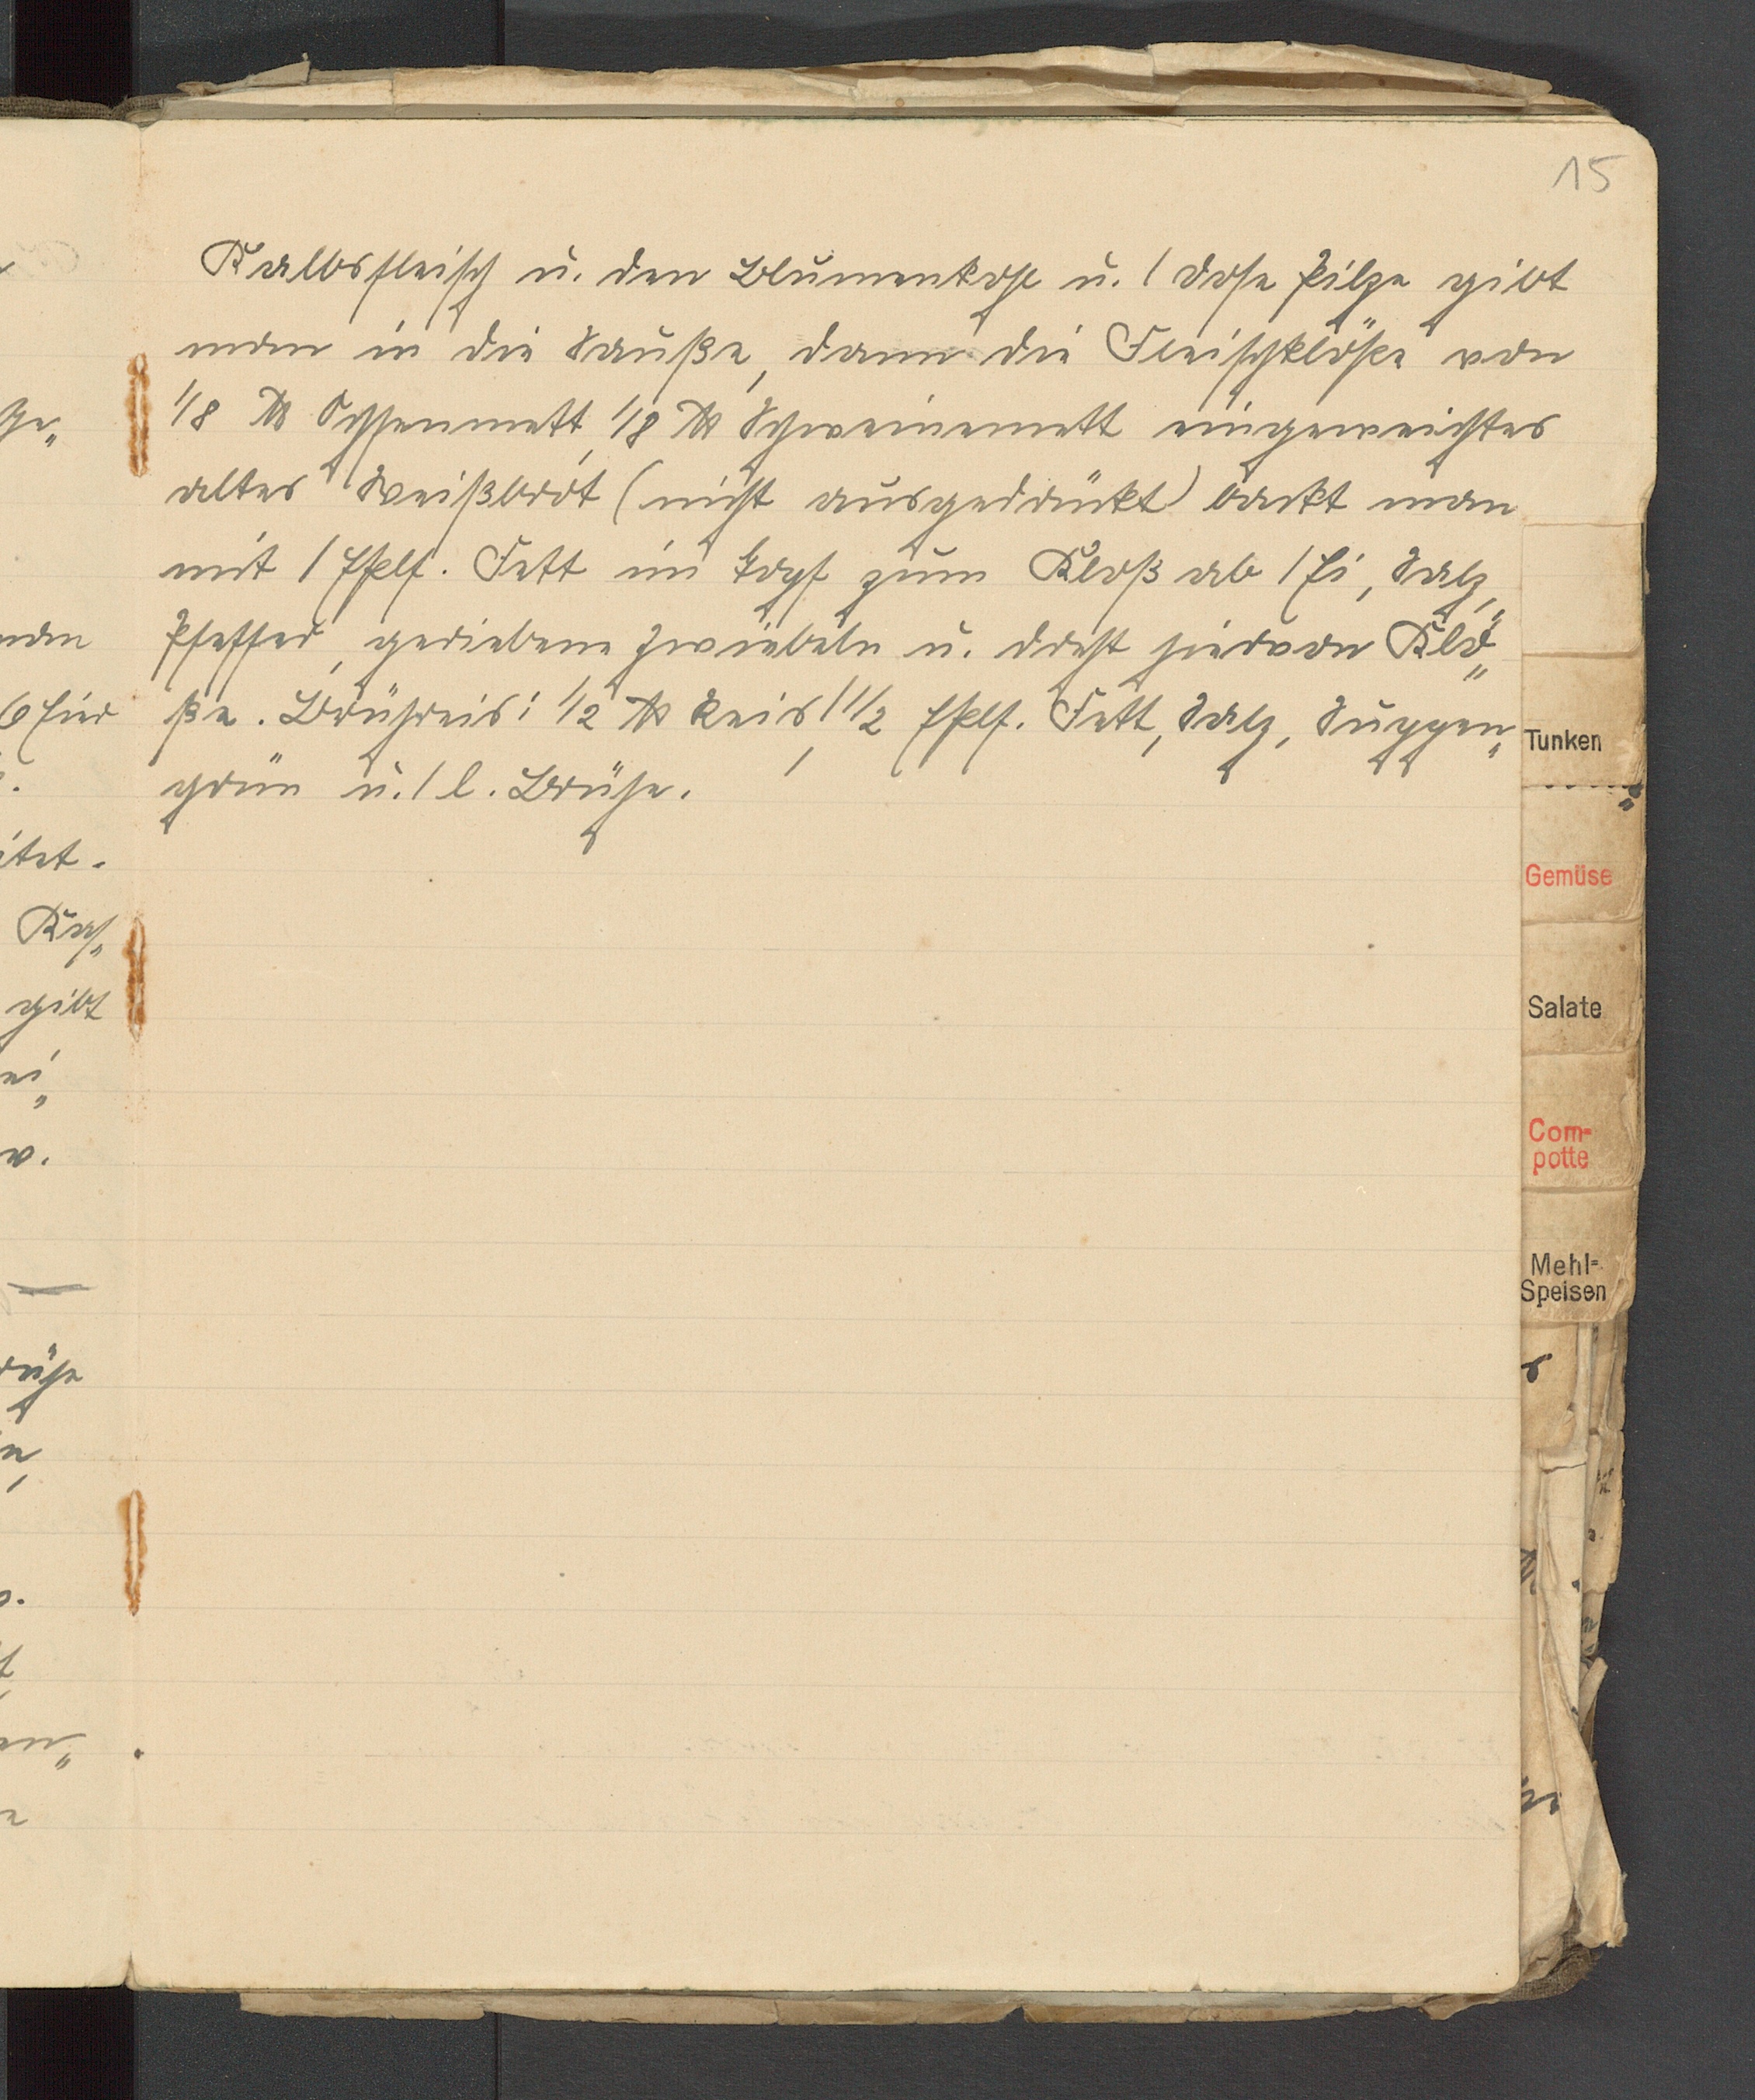 15
Kalbsfleisch u. den Blumenkohl u. 1 Dose Pilze gibt
man in die Sauße, dann die Fleischklöße von
1/8 ℔ Ochsenmett, 1/8 ℔ Schweinemett eingeweichtes
altes Weißbrot (nicht ausgedrückt) backt man
mit 1 Eßlf. Fett im Topf zum Kloß ab 1 Ei, Salz,
Pfeffer, geriebene Zwiebeln u. dreht hiervon Klö„
ße. Brühreis: 1/2 ℔ Reis, 1 1/2 Eßlf. Fett, Salz, Suppen„
grün u. 1 l. Brühe.
Tunken
Gemüse
Salate
Com=
potte
Mehl=
Speisen
6 Eier
gibt